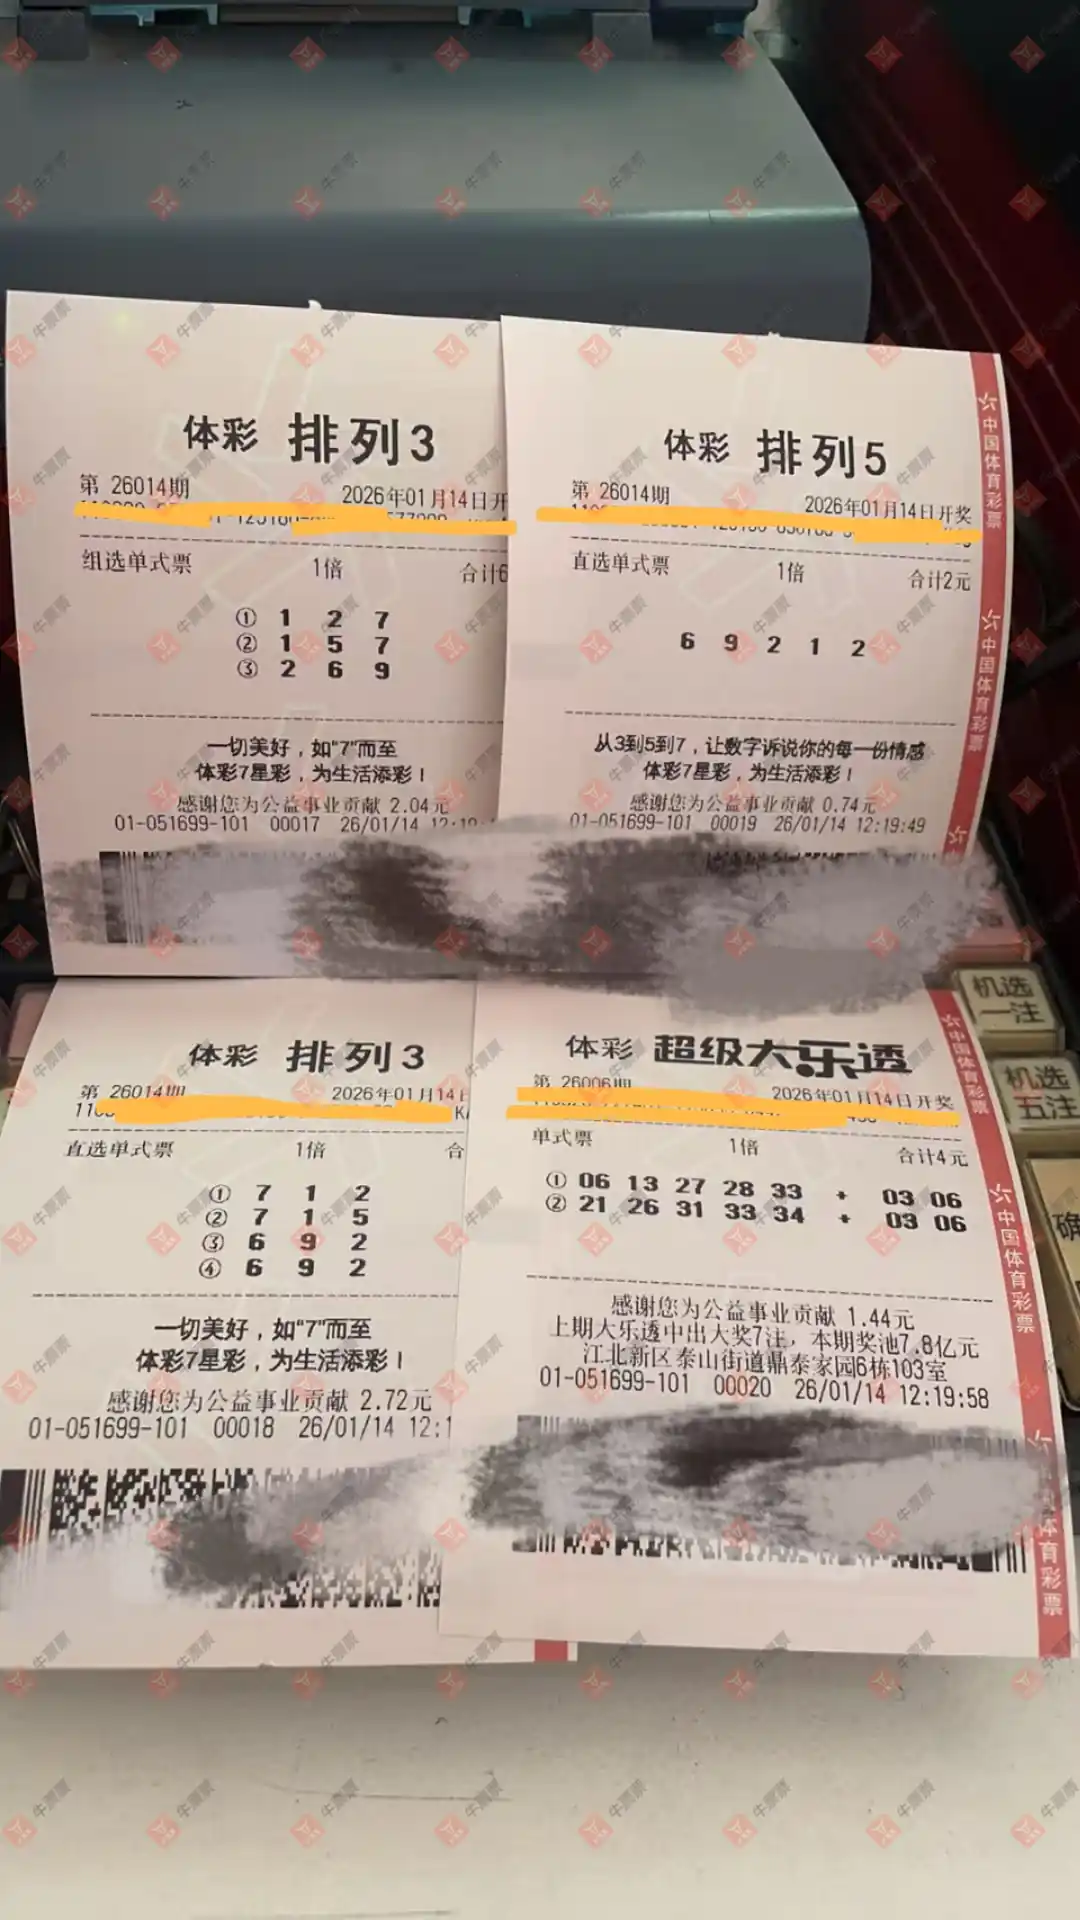 体彩 排列3
第 26014期 2026年01月14日开
组选单式票 1倍 合计6
① 1 2 7
② 1 5 7
③ 2 6 9
一切美好，如“7”而至
体彩7星彩，为生活添彩！
感谢您为公益事业贡献 2.04元
01-051699-101 00017 26/01/14
体彩 排列5
第 26014期 2026年01月14日开奖
直选单式票 1倍 合计2元
6 9 2 1 2
从3到5到7，让数字诉说你的每一份情感
体彩7星彩，为生活添彩！
感谢您为公益事业贡献 0.74元
01-051699-101 00019 26/01/14 12:19:49
中国体育彩票
中国体育彩票
体彩 排列3
第 26014期 2026年01月14日
直选单式票 1倍 合
① 7 1 2
② 7 1 5
③ 6 9 2
④ 6 9 2
一切美好，如“7”而至
体彩7星彩，为生活添彩！
感谢您为公益事业贡献 2.72元
01-051699-101 00018 26/01/14 12:1
体彩 超级大乐透
第 26006期 2026年01月14日开奖
单式票 1倍 合计4元
① 06 13 27 28 33 + 03 06
② 21 26 31 33 34 + 03 06
感谢您为公益事业贡献 1.44元
上期大乐透中出大奖7注，本期奖池7.8亿元
江北新区泰山街道鼎泰家园6栋103室
01-051699-101 00020 26/01/14 12:19:58
中国体育彩票
中国体育彩票
体育彩票
机选
一注
机选
五注
确
牛票票